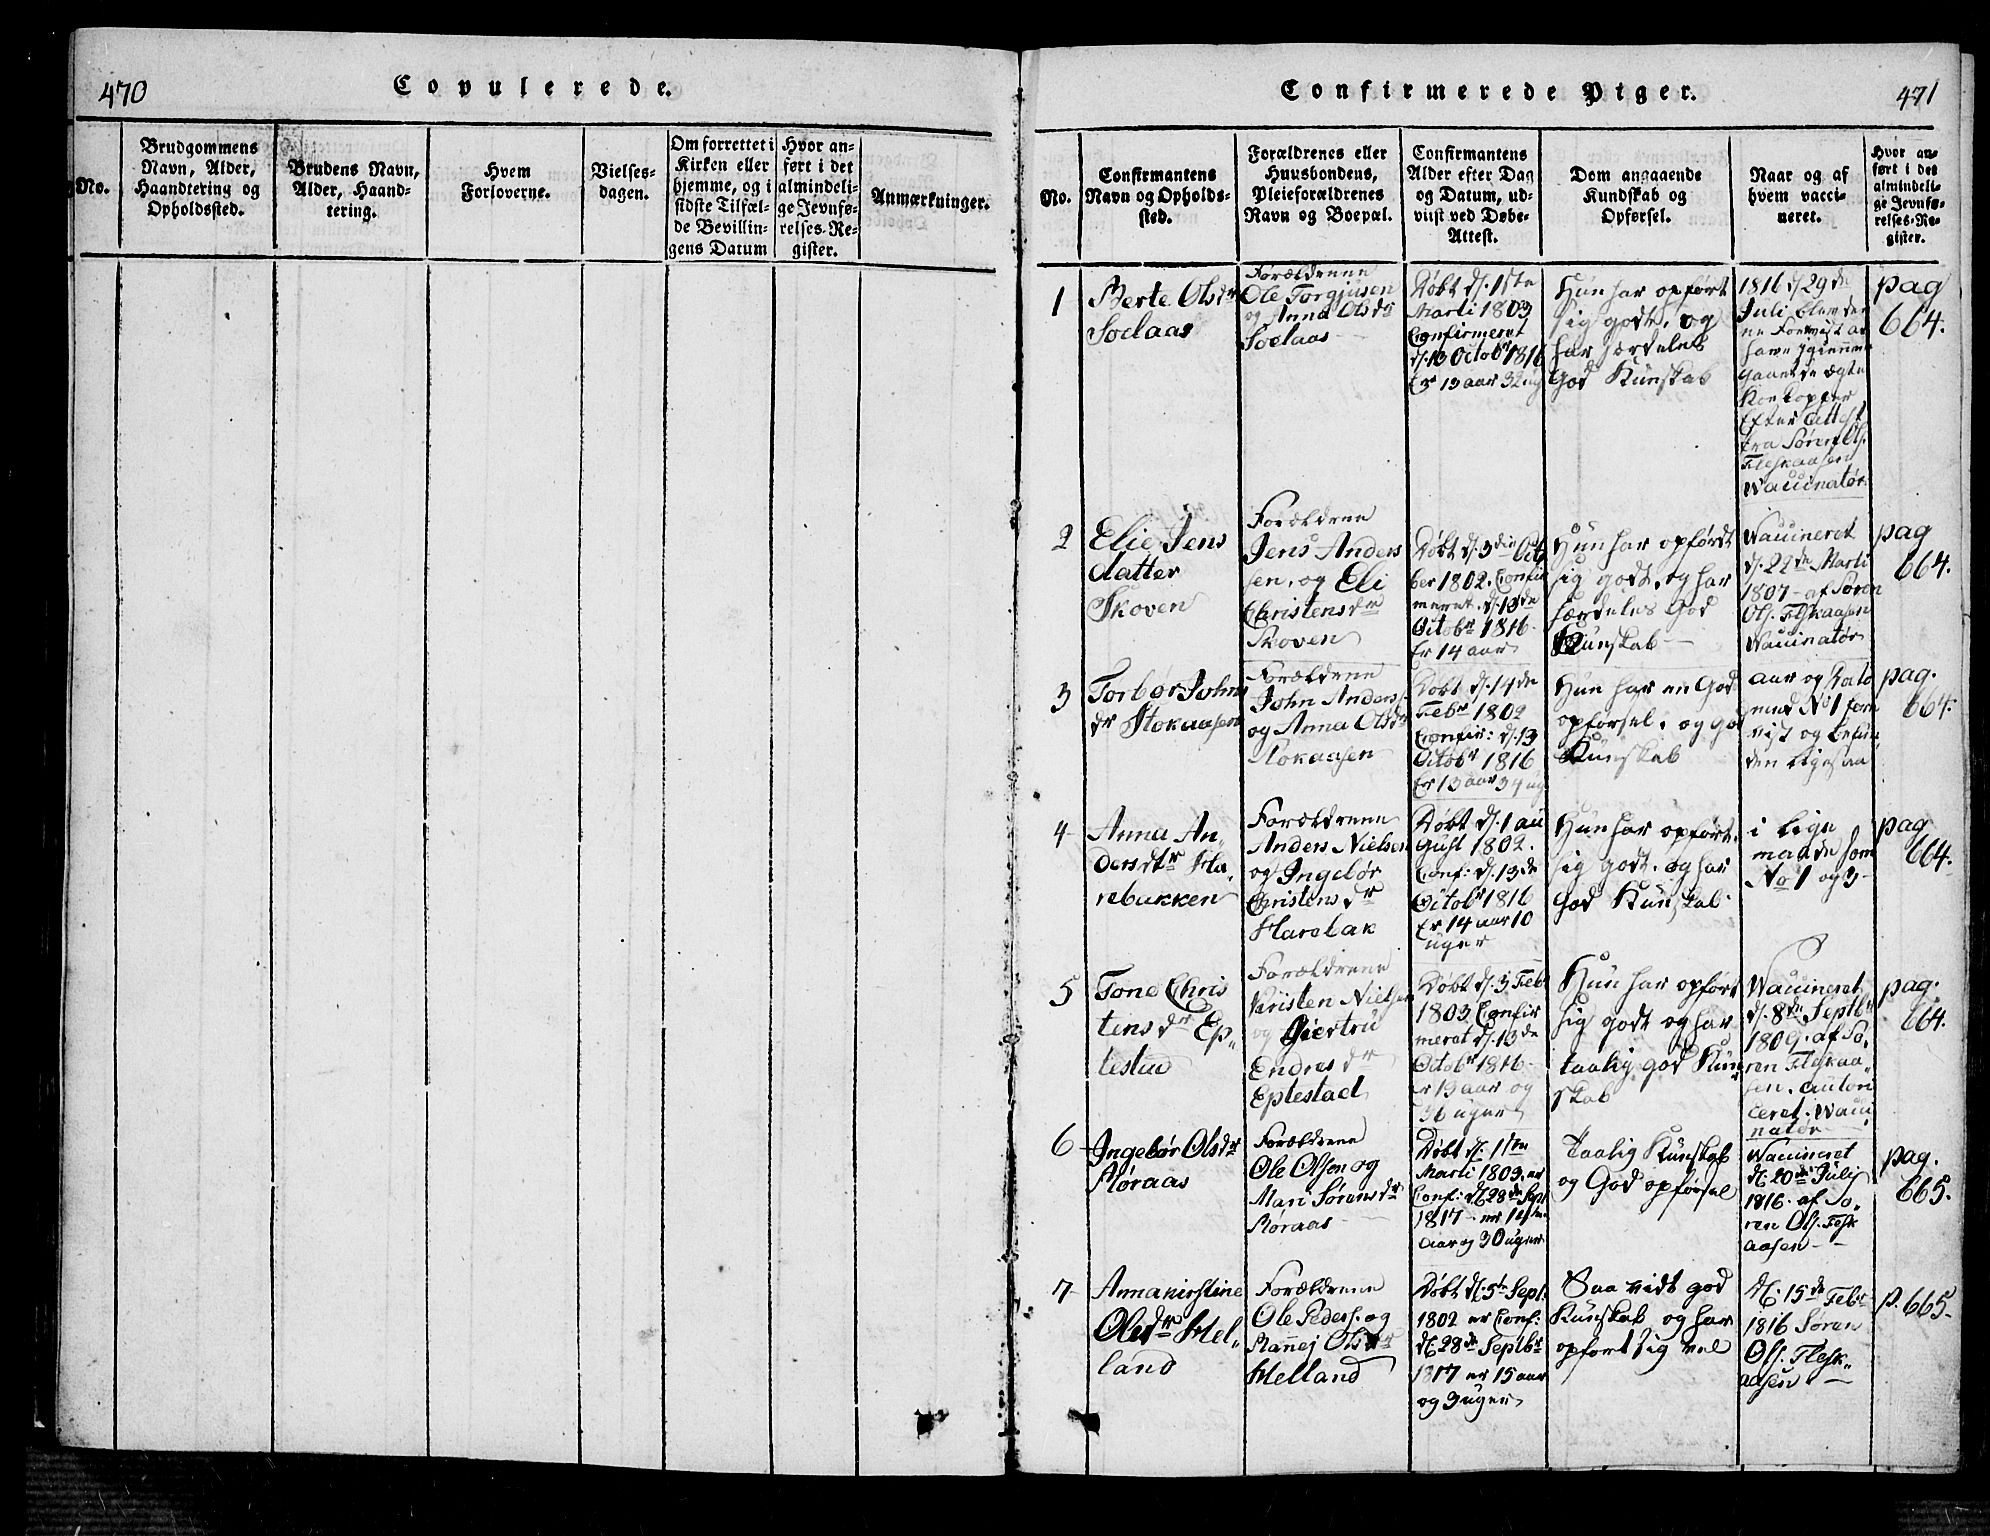 470
Copulerede.
No.
Brudgommens
Navn, Alder,
Haandtering og
Opholdssted.
Brudens Navn,
Alder, Haand-
tering.
Hvem
Forloverne.
Vielses-
dagen.
Om forrettet i
Kirken eller
hjemme, og i
sidste Tilfæl-
de Bevillin-
gens Datum
Hvor an-
ført i det
almindeli-
ge Jevnfø-
relses-Re-
gister.
Anmærkninger.
Confirmerede Piger.
471
No.
Confirmantens
Navn og Opholds-
sted.
Forældrenes eller
Huusbondens,
Pleieforældrenes
Navn og Boepæl.
Confirmantens
Alder efter Dag
og Datum, ud-
viist ved Døbe-
Attest.
Dom angaaende
Kundskab og
Opførsel.
Naar og af
hvem vacci-
neret.
Hvor an-
ført i det
almindeli-
ge Jevnfø-
relses-Re-
gister.
1
Berte Olsdr
Soelaas
Forældrene
Ole Torgjusen
og Anna Olsdr
Soelaas
Døbt d. 1ste
Marti 1803
Confirmeret
d. 13 Octobr 1816
Er 13 aar 32 ug
Hun har opført
sig godt, og
har særdeles
God Kunskab
1816 d. 29de
Juli blev den
ne Forevist at
have igiennem
gaaet de ægte
Koekopper
Efter Attest
fra Søren Ols.
Fleskaasen
Waccinatør
pag
664.
2
Elie Jens
datter
Skoven
Forældrene
Jens Anders
sen, og Eli
Christensdr
Skoven
Døbt d. 3die Octo
ber 1802. Confir
meret. d. 13de
Octobr 1816
Er 14 aar
Hun har opførdt
sig godt, og har
særdeles God
Kunskab
Waccineret
d. 22de Marti
1807 - af Søren
Ols. Fleskaasen
Waccinatør
pag
664.
3
Torbør Johns
dr Stokaasen
Forældrene
John Anders.
og Anna Olsdr
Stokaasen
Døbt d. 14de
Febr 1802
Confir: d. 13
Octobr 1816
Er 13 aar 34 ug
Hun har en God
opførsel. og god
Kunskab
aar og Dato
med No 1 fore
vist og befun
den ligesaa
pag.
664.
4
Anna An„
dersdtr Ha„
rebakken
Forældrene
Anders Nielsen
og Ingebør
Christensdr
Harebak
Døbt d. 1 au
gust 1802.
Conf: d. 13de
Octobr 1816
Er 14 aar 10
uger
Hun har opført
sig godt. og har
God Kunskab
i lige
maade som
No 1 og 3
pag
664.
5
Tone Chris
tensdr Ep„
testad
Forældrene
Kristen Nielsen
og Giertru
Endresdr
Eptestad
Døbt d. 3 Feb
1803 Confir
meret d. 13de
Octobr 1816
er 13 aar og
36 uger
Hun har opført
sig godt og har
taalig god Kun
skab
Waccineret
d. 8de Septbr
1809. af Sø„
ren Fleskaa„
sen. autori
ceret. Wacci
natør
pag.
664.
6
Ingebør Olsdr
Røraas
Forældrene
Ole Olsen og
Mari Sørensdr
Røraas
Døbt d. 1ste
Marti 1803. er
Conf: d. 28de Sept
1817 er 14
aar og 30 uger
Taalig Kunskab
og God opførsel
Waccineret
d. 20de Julij
1816. af Sø„
ren Ols. Flesk
aasen
pag.
665.
7
Annakirstine
Olsdr Hel„
land
Forældrene
Ole Peders. og
Rannej Olsdr
Helland
Døbt d. 5te Sept.
1802 er Conf:
d. 28de Septbr
1817 er 15 aar
og 3 uger
Saa vidt god
Kunskab og har
opført sig vel
d. 15de Febr
1816 Søren
Ols. Flesk„
aasen
p. 665.